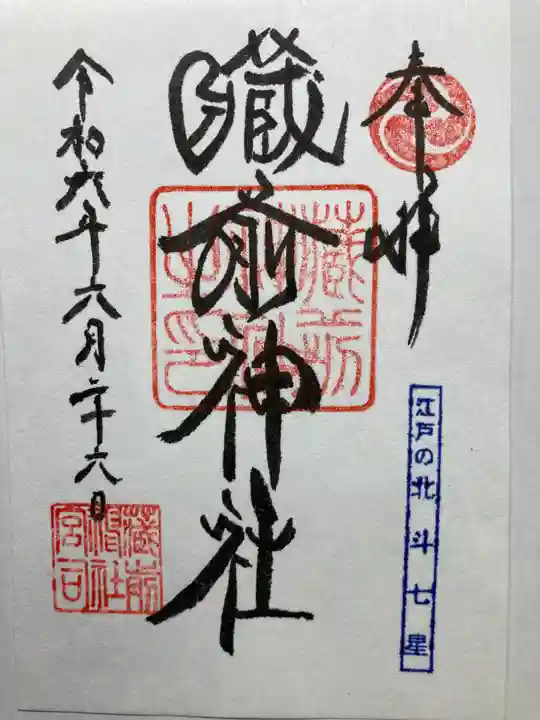 奉拝
江戸の北斗七星
藏前神社
藏前神社之印
令和六年六月二十六日
藏前神社宮司